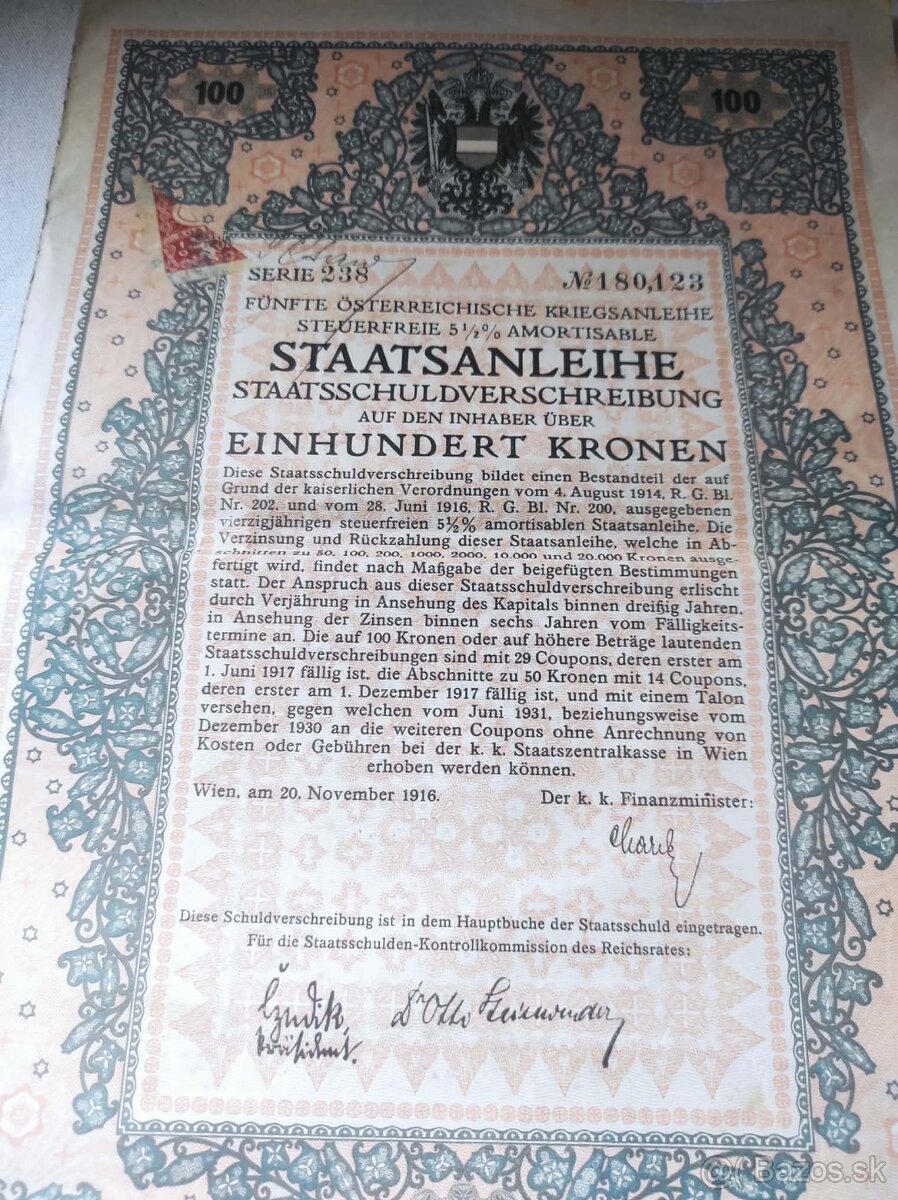 100
100
SERIE 238
№ 180,123
FÜNFTE ÖSTERREICHISCHE KRIEGSANLEIHE
STEUERFREIE 5½% AMORTISABLE
STAATSANLEIHE
STAATSSCHULDVERSCHREIBUNG
AUF DEN INHABER ÜBER
EINHUNDERT KRONEN
Diese Staatsschuldverschreibung bildet einen Bestandteil der auf
Grund der kaiserlichen Verordnungen vom 4. August 1914, R. G. Bl.
Nr. 202, und vom 28. Juni 1916, R. G. Bl. Nr. 200, ausgegebenen
vierzigjährigen steuerfreien 5½% amortisablen Staatsanleihe. Die
Verzinsung und Rückzahlung dieser Staatsanleihe, welche in Ab-
schnitten zu 50, 100, 200, 1000, 2000, 10.000 und 20.000 Kronen ausge-
fertigt wird, findet nach Maßgabe der beigefügten Bestimmungen
statt. Der Anspruch aus dieser Staatsschuldverschreibung erlischt
durch Verjährung in Ansehung des Kapitals binnen dreißig Jahren,
in Ansehung der Zinsen binnen sechs Jahren vom Fälligkeits-
termine an. Die auf 100 Kronen oder auf höhere Beträge lautenden
Staatsschuldverschreibungen sind mit 29 Coupons, deren erster am
1. Juni 1917 fällig ist, die Abschnitte zu 50 Kronen mit 14 Coupons,
deren erster am 1. Dezember 1917 fällig ist, und mit einem Talon
versehen, gegen welchen vom Juni 1931, beziehungsweise vom
Dezember 1930 an die weiteren Coupons ohne Anrechnung von
Kosten oder Gebühren bei der k. k. Staatszentralkasse in Wien
erhoben werden können.
Wien, am 20. November 1916.
Der k. k. Finanzminister:
Diese Schuldverschreibung ist in dem Hauptbuche der Staatsschuld eingetragen.
Für die Staatsschulden-Kontrollkommission des Reichsrates:
Präsident.
Dr Otto
Bazos.sk